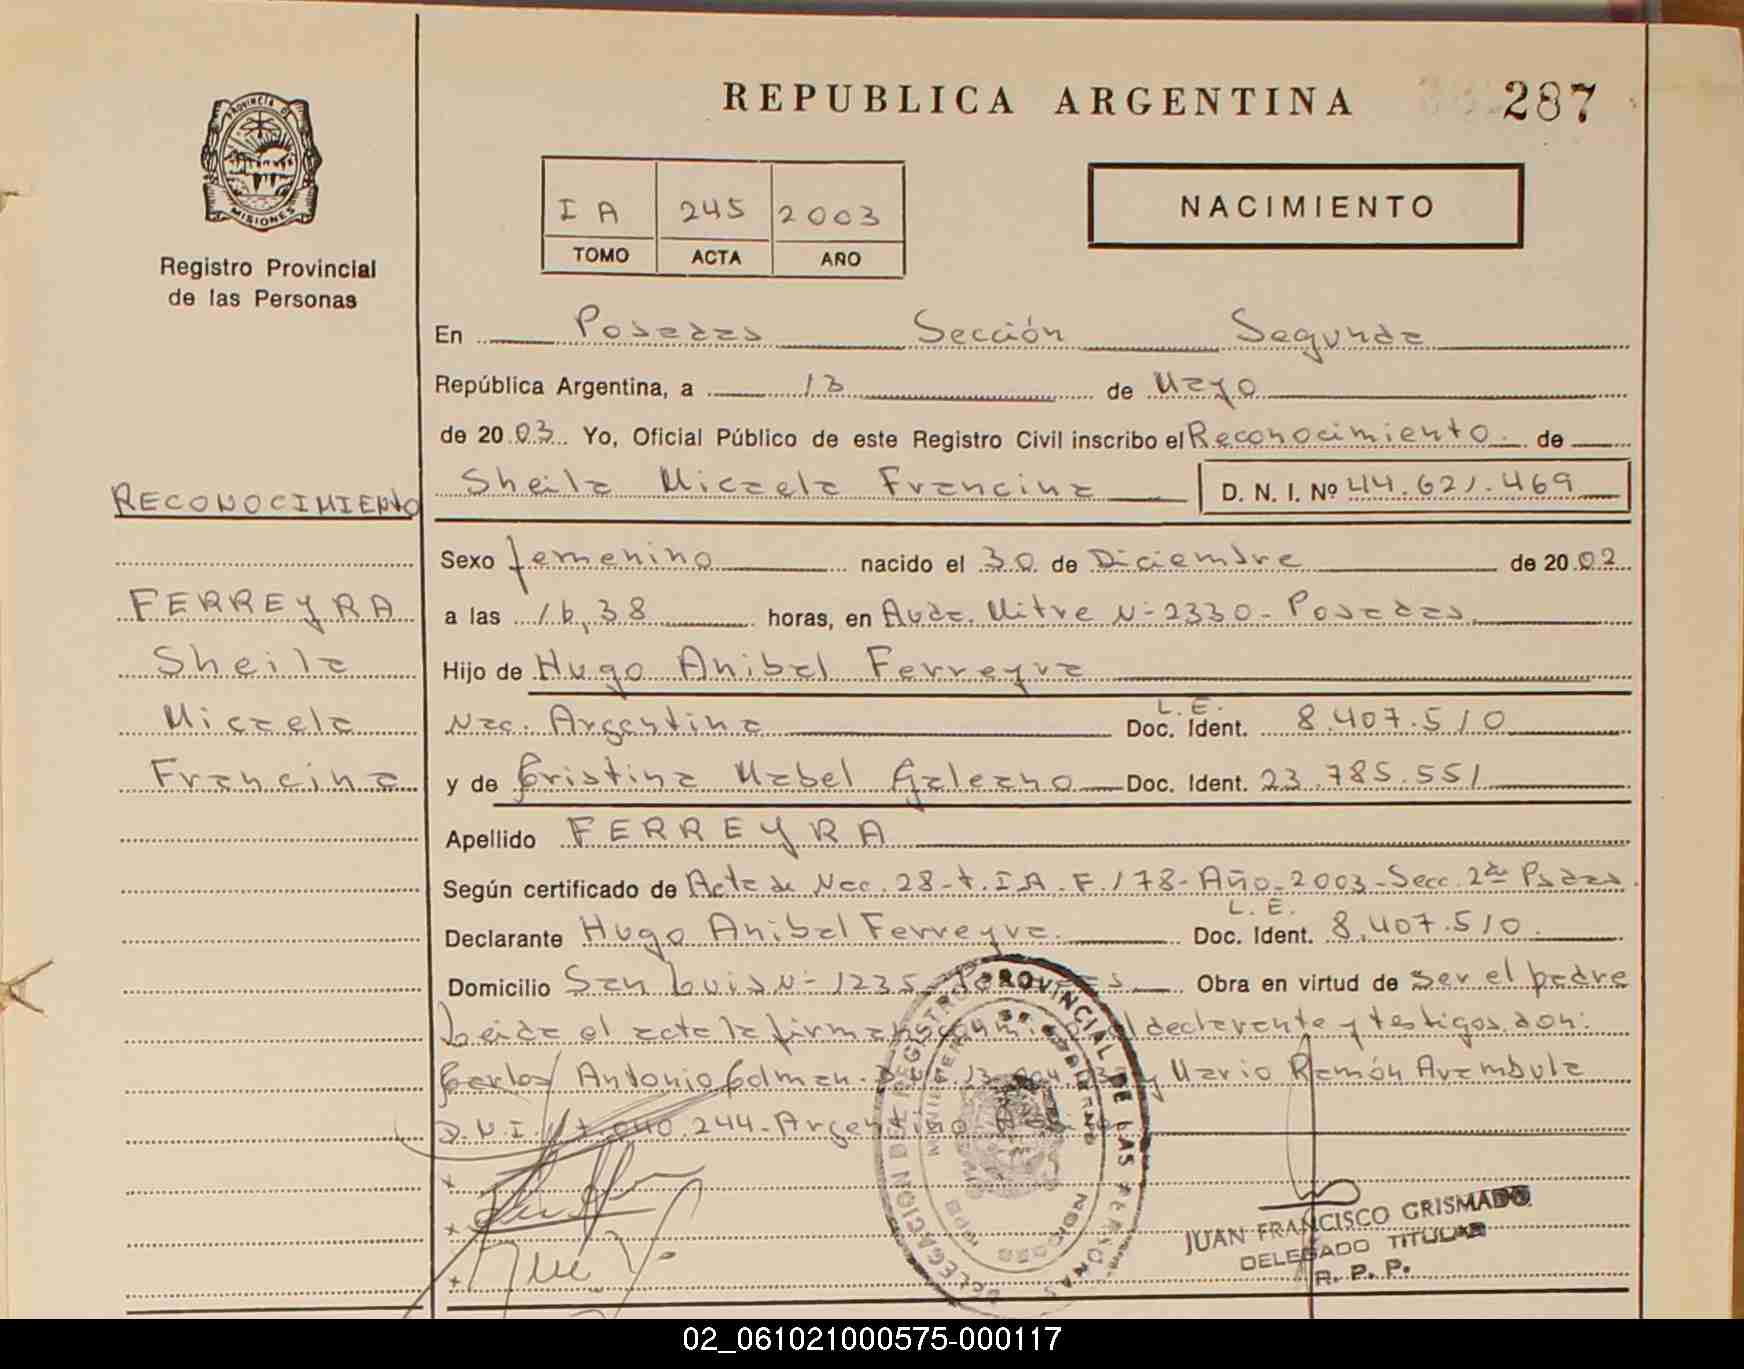 REPUBLICA ARGENTINA
287
PROVINCIA DE
MISIONES
Registro Provincial
de las Personas
I A 245 2003
TOMO ACTA AÑO
NACIMIENTO
En Posadas Sección Segunda
República Argentina, a 13 de Mayo
de 2003 Yo, Oficial Público de este Registro Civil inscribo el Reconocimiento de
Sheila Micaela Francina D. N. I. Nº 44.621.469
RECONOCIMIENTO
FERREYRA
Sheila
Micaela
Francina
Sexo femenino nacido el 30 de Diciembre de 2002
a las 16,38 horas, en Avda. Mitre N- 2330 - Posadas
Hijo de Hugo Anibal Ferreyra
Nac. Argentina L. E. Doc. Ident. 8.407.510
y de Cristina Mabel Galeano Doc. Ident. 23.785.551
Apellido FERREYRA
Según certificado de Acta de Nac. 28 - t. I A . F. 178 - Año - 2003 - Secc. 2da
Declarante Hugo Anibal Ferreyra L. E. Doc. Ident. 8.407.510
Domicilio San Luis N- 1235 Obra en virtud de ser el padre
Leida el acta la firman el declarante y testigos don:
Carlos Antonio Colman y Mario Ramón Arambula
D.N.I. 244 -
DELEGACION DEL REGISTRO PROVINCIAL DE LAS PERSONAS
JUAN FRANCISCO GRISMADO
DELEGADO TITULAR
R. P. P.
02_061021000575-000117